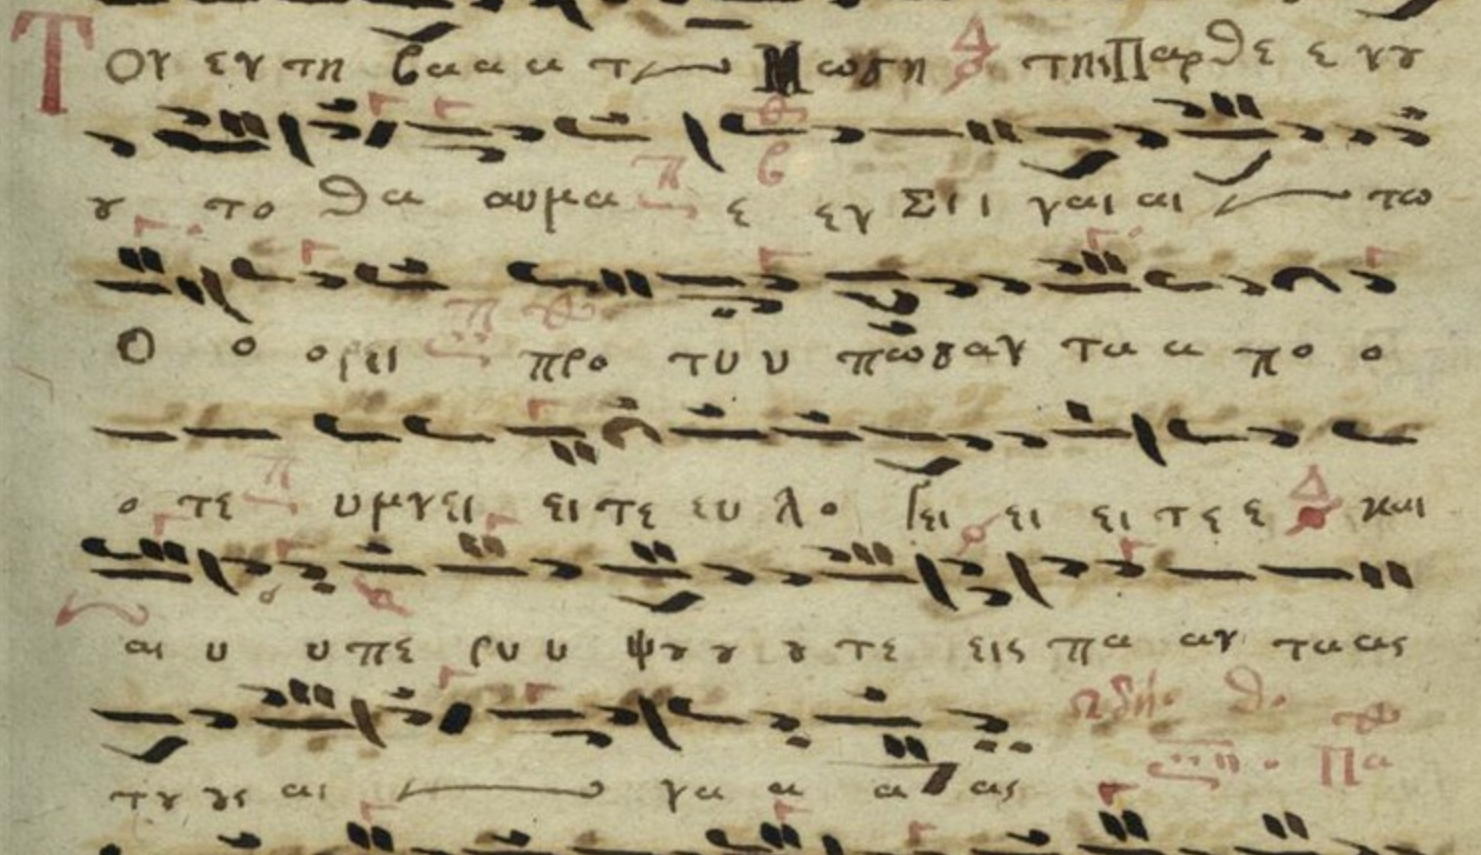 Τ ου εν τη βα α α τ Μωση Δ της Παρθε ε νυ
υ το θα αυμα π ε εν Σι ι ι ναι αι τω
Ο ο ορει π προ τυ υ πωσαν τα α πο ο
ο τε π υμνει ει τε ευ λο γει ει ει τε ε Δ και
αι υ υπε ρυ υ ψυ υ υ τε εις πα αν τα ας
Ωδή. θ.
τυ υς αι να α α ας Πα